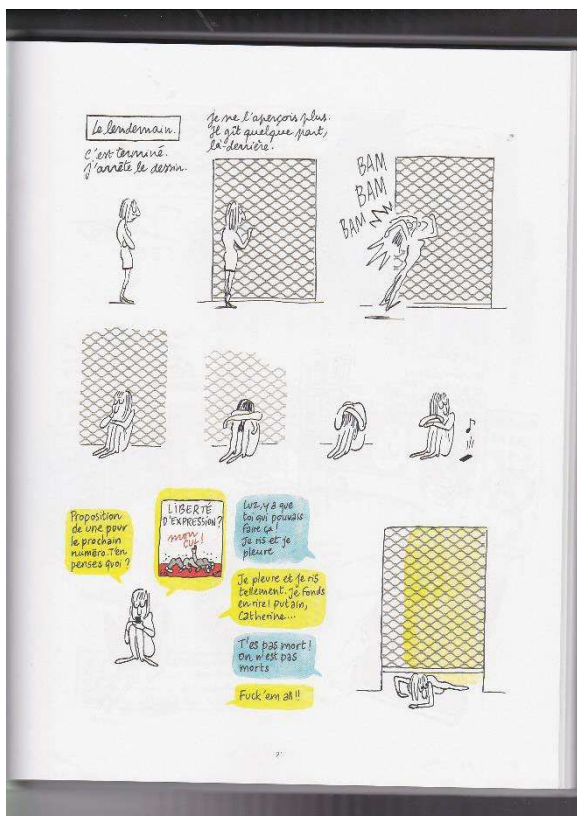 Le lendemain.
C'est terminé.
J'arrête le dessin.
Je ne l'aperçois plus.
Il gît quelque part,
là-derrière.
BAM
BAM
BAM
Proposition
de une pour
le prochain
numéro. T'en
penses quoi ?
LIBERTÉ
D'EXPRESSION?
mon
cul !
Luz, y a que
toi qui pouvais
faire ça !
Je ris et je
pleure
Je pleure et je ris
tellement. Je fonds
en rire ! Putain,
Catherine...
T'es pas mort !
On n'est pas
morts
Fuck 'em all !!